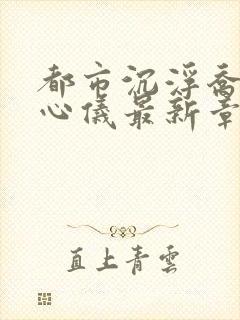 都市沉浮乔
心儀最新章
直上青雲